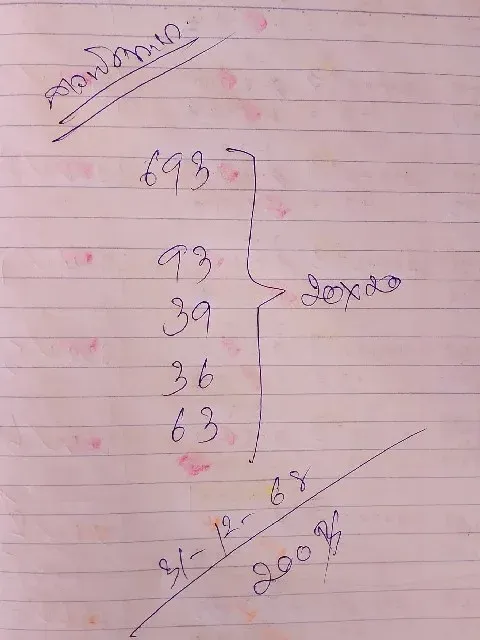 693
93
39
36
63
20x20
31-12-68
200